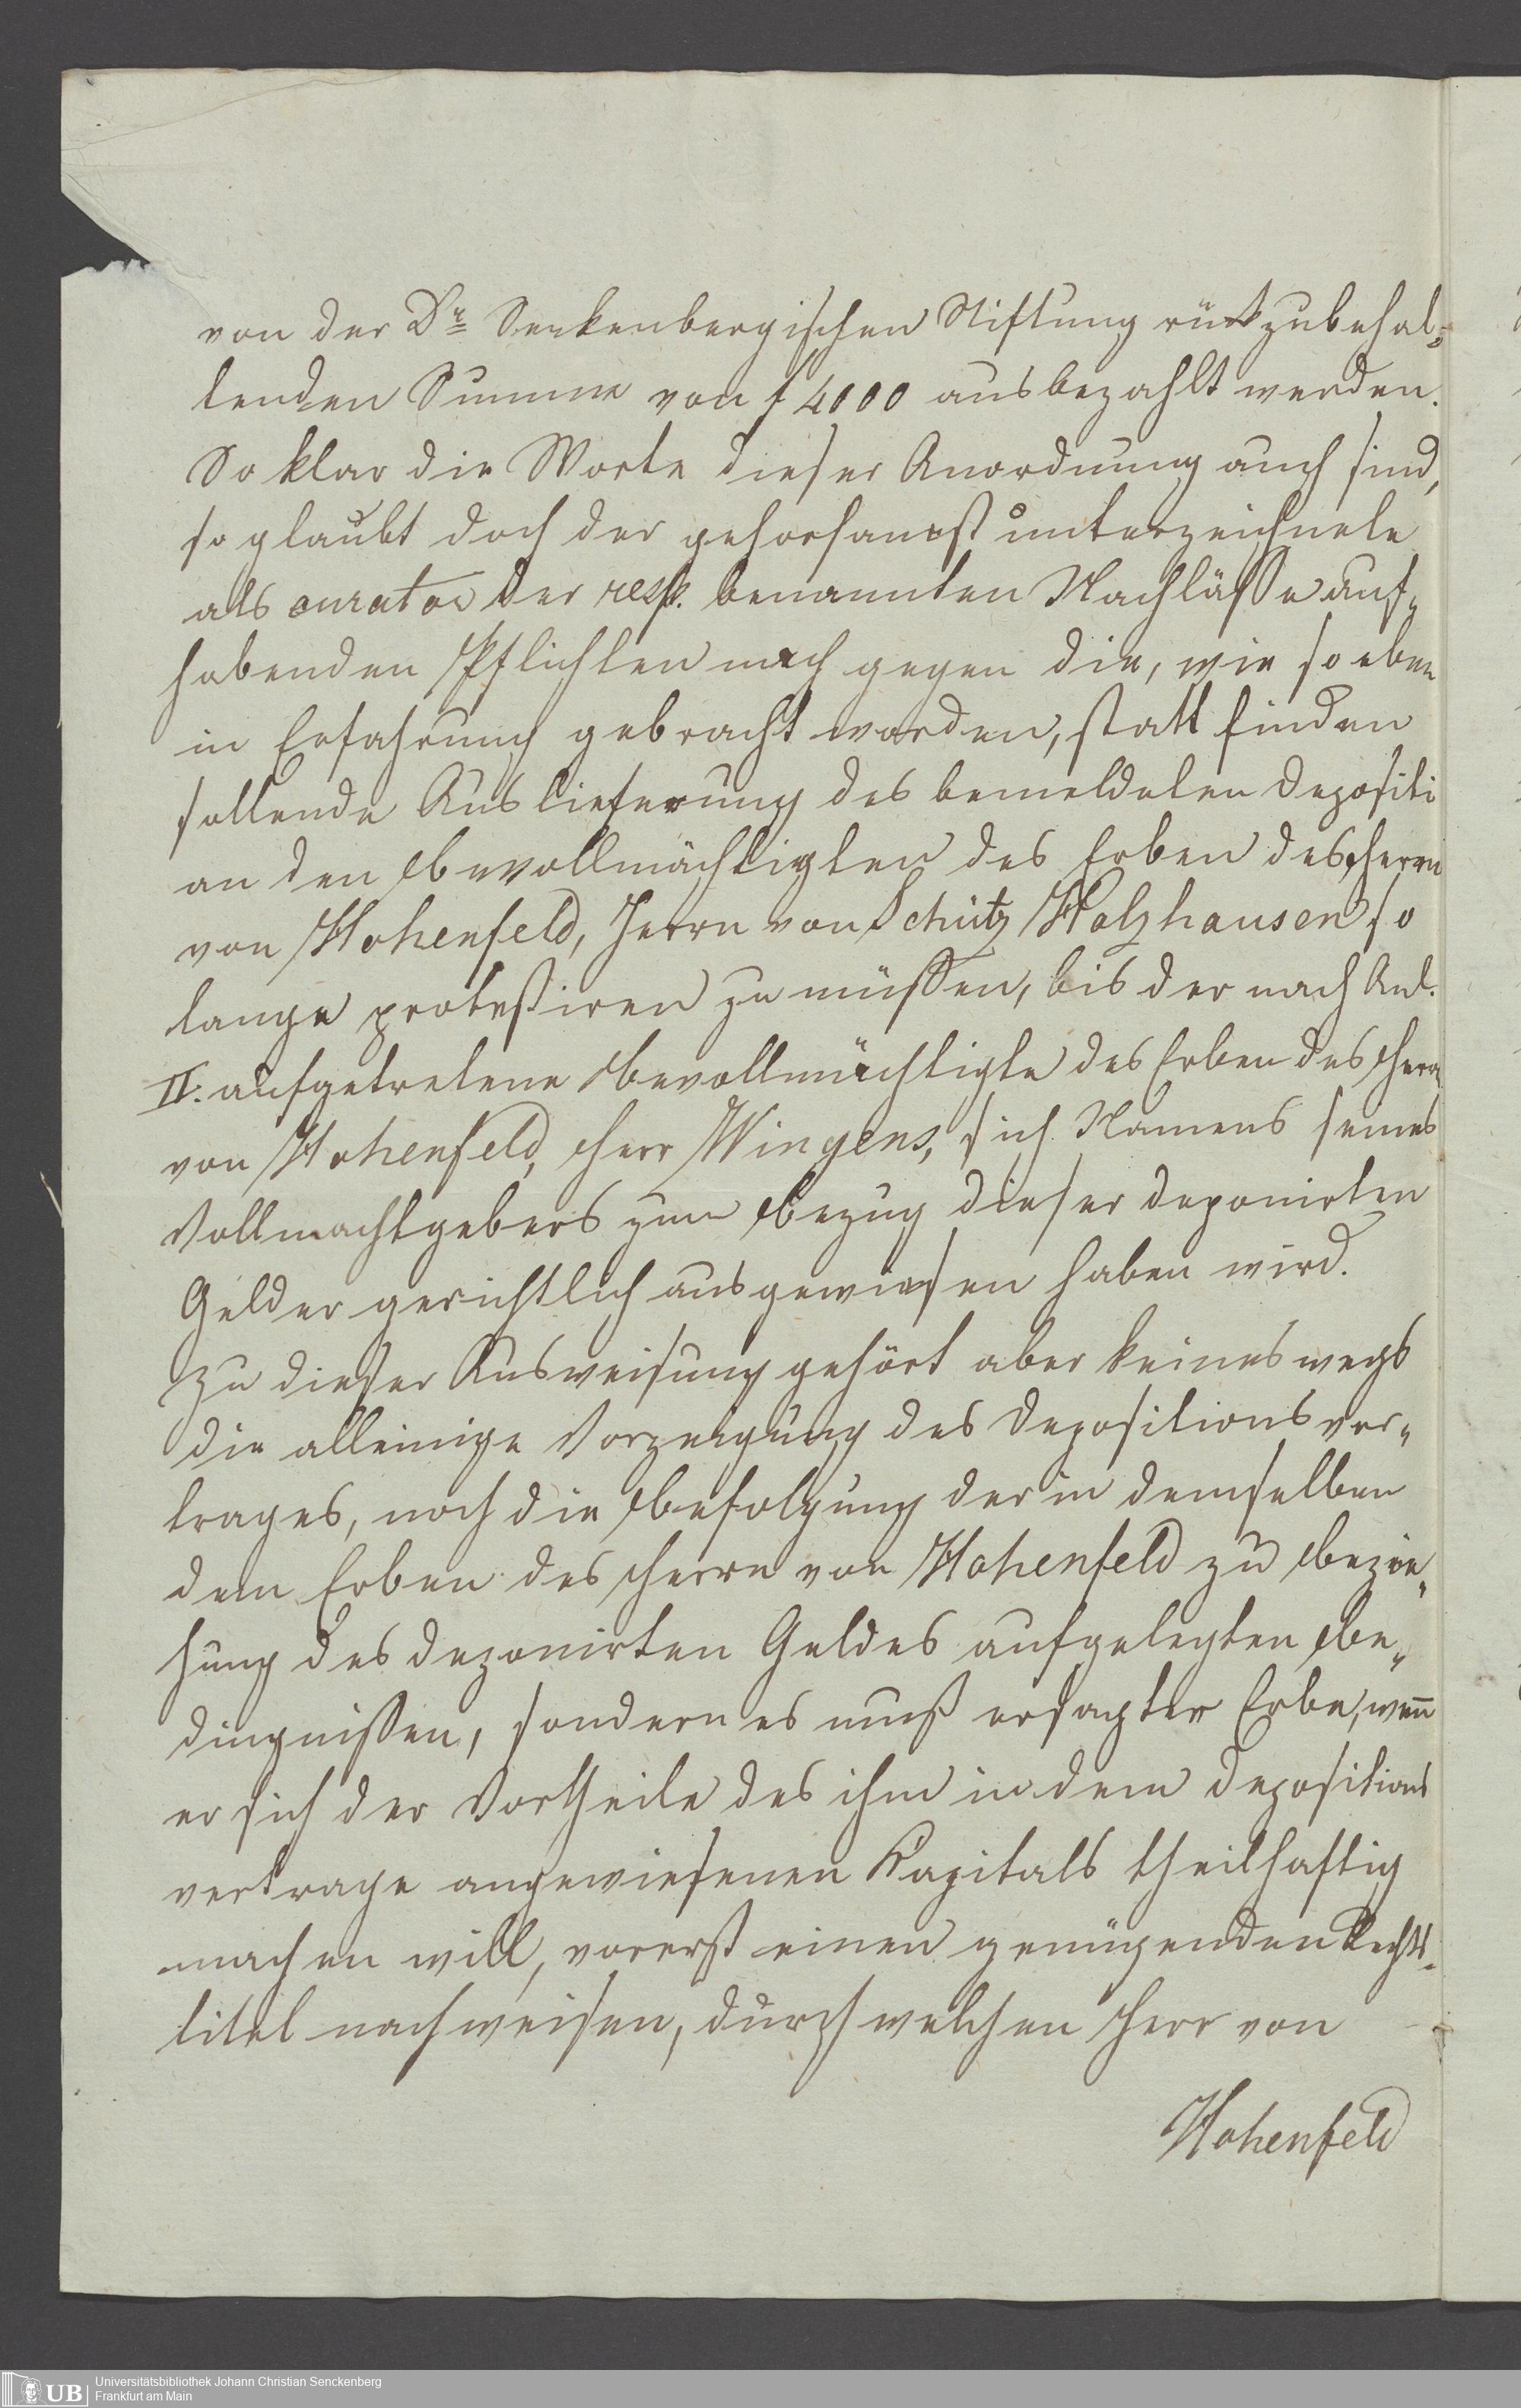 von der Dr Senkenbergischen Stiftung rükzubehal-
tenden Summe von f 4000 ausbezahlt werden.
So klar die Worte dieser Anordnung auch sind,
so glaubt doch der gehorsamst unterzeichnete
als curator der resp. benannten Nachläße auf-
habenden Pflichten nach gegen die, wie so eben
in Erfahrung gebracht worden, statt finden
sollende Auslieferung des bemeldeten Depositi
an den Bevollmächtigten des Erben des Herrn
von Hohenfeld, Herrn von Schütz Holzhausen so
lange protestiren zu müssen, bis der nach Anl.
II. aufgetretene Bevollmächtigte des Erben des Herrn
von Hohenfeld, Herr Wingens, sich Namens seines
Vollmachtgebers zum Bezug dieser deponirten
Gelder gerichtlich ausgewiesen haben wird.
Zu dieser Ausweisung gehört aber keineswegs
die alleinige Vorzeigung des Depositionsver-
trages, noch die Befolgung der in demselben
dem Erben des Herrn von Hohenfeld zu Bezie-
hung des deponirten Geldes aufgelegten Be-
dingnißen, sondern es muß ersagter Erbe, wenn
er sich der Vortheile des ihm in dem Depositions
vertrage angewiesenen Kapitals theilhaftig
machen will, vorerst einen genügenden Rechts-
titel nachweisen, durch welchen Herr von
Hohenfeld
UB
Universitätsbibliothek Johann Christian Senckenberg
Frankfurt am Main